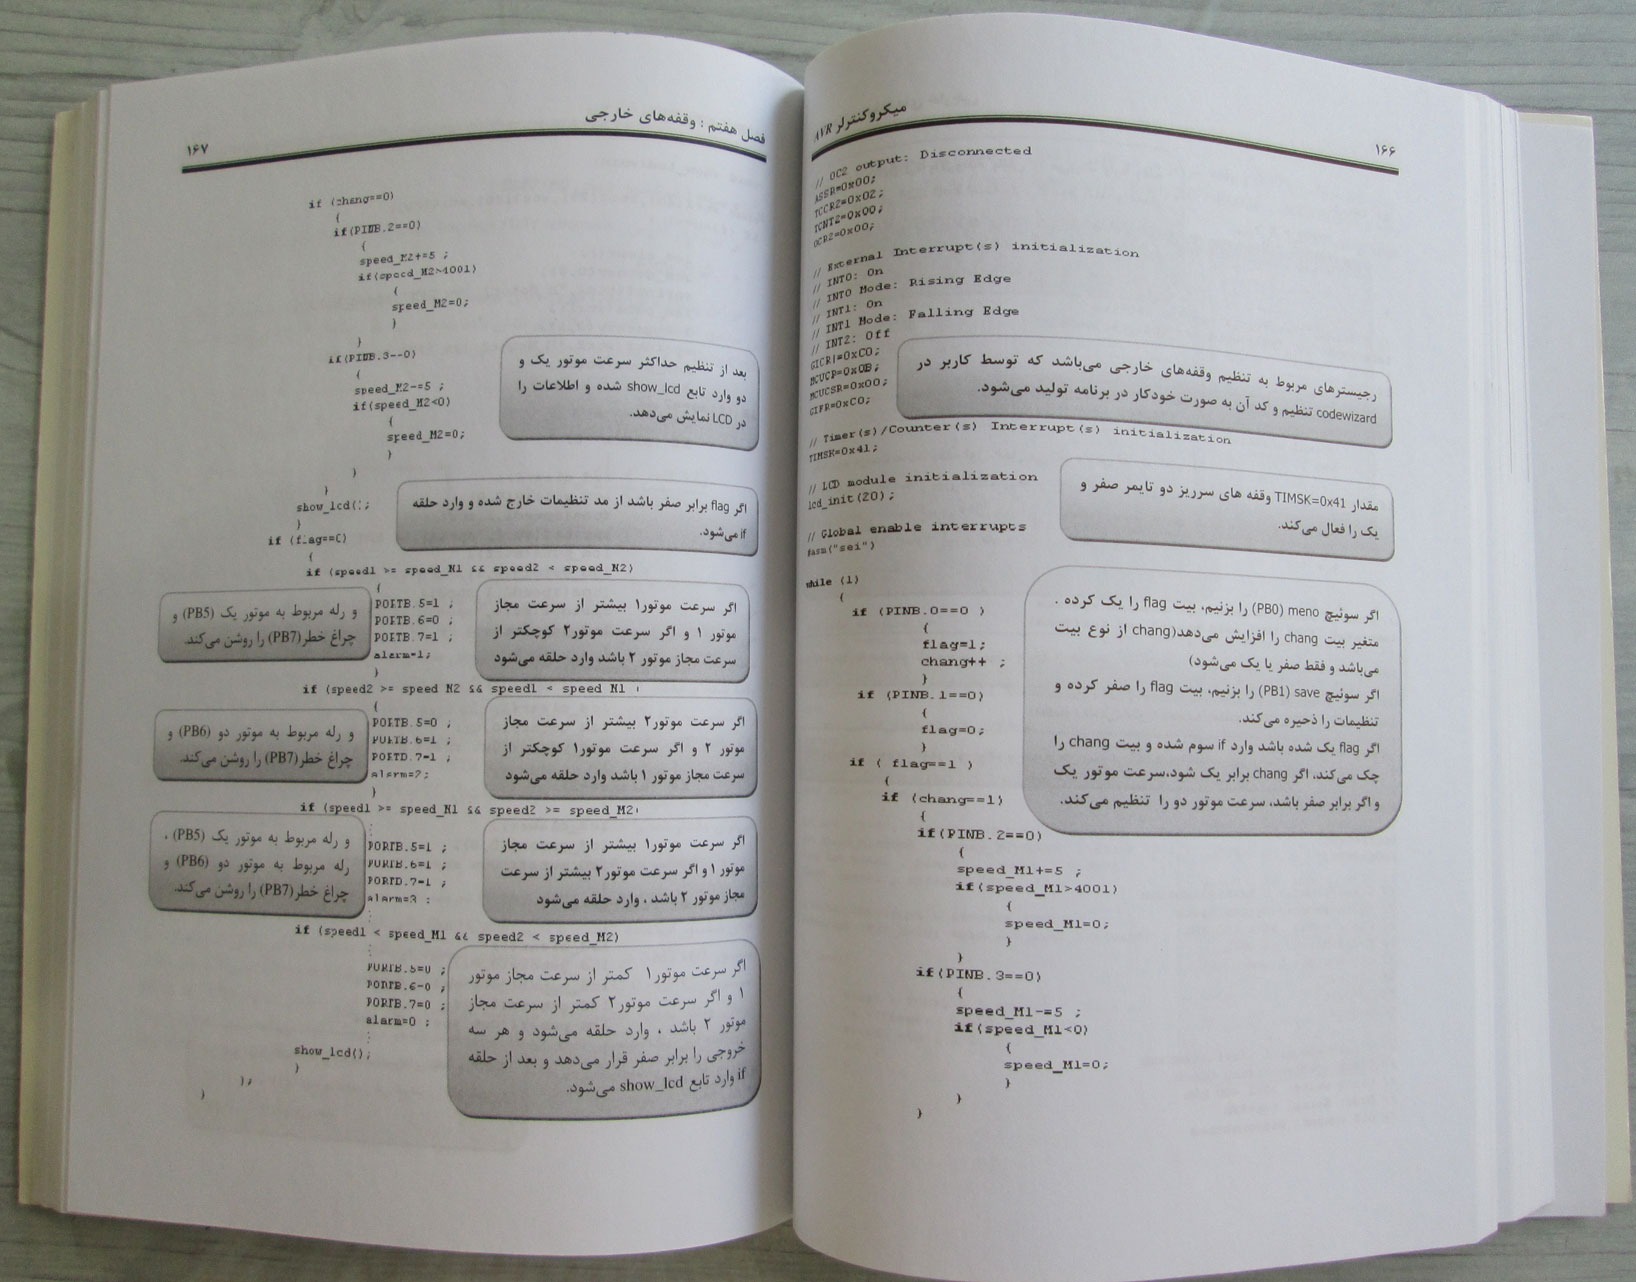 میکروکنترلر AVR
۱۶۶
// OC2 output: Disconnected
ASSR=0x00;
TCCR2=0x02;
TCNT2=0x00;
OCR2=0x00;
// External Interrupt(s) initialization
// INT0: On
// INT0 Mode: Rising Edge
// INT1: On
// INT1 Mode: Falling Edge
// INT2: Off
GICR|=0xC0;
MCUCR=0x0B;
MCUCSR=0x00;
GIFR=0xC0;
رجیسترهای مربوط به تنظیم وقفه‌های خارجی می‌باشد که توسط کاربر در
codewizard تنظیم و کد آن به صورت خودکار در برنامه تولید می‌شود.
// Timer(s)/Counter(s) Interrupt(s) initialization
TIMSK=0x41;
مقدار TIMSK=0x41 وقفه های سرریز دو تایمر صفر و
یک را فعال می‌کند.
// LCD module initialization
lcd_init(20);
// Global enable interrupts
#asm("sei")
while (1)
{
if (PINB.0==0 )
{
flag=1;
chang++ ;
}
if (PINB.1==0)
{
flag=0;
}
if ( flag==1 )
{
if (chang==1)
{
if(PINB.2==0)
{
speed_M1+=5 ;
if(speed_M1>4001)
{
speed_M1=0;
}
}
if(PINB.3==0)
{
speed_M1-=5 ;
if(speed_M1<0)
{
speed_M1=0;
}
}
}
اگر سوئیچ meno (PB0) را بزنیم، بیت flag را یک کرده .
متغیر بیت chang را افزایش می‌دهد(chang از نوع بیت
می‌باشد و فقط صفر یا یک می‌شود)
اگر سوئیچ save (PB1) را بزنیم، بیت flag را صفر کرده و
تنظیمات را ذخیره می‌کند.
اگر flag یک شده باشد وارد if سوم شده و بیت chang را
چک می‌کند، اگر chang برابر یک شود،سرعت موتور یک
و اگر برابر صفر باشد، سرعت موتور دو را تنظیم می‌کند.
فصل هفتم : وقفه‌های خارجی
۱۶۷
if (chang==0)
{
if(PINB.2==0)
{
speed_M2+=5 ;
if(speed_M2>4001)
{
speed_M2=0;
}
}
if(PINB.3==0)
{
speed_M2-=5 ;
if(speed_M2<0)
{
speed_M2=0;
}
}
}
بعد از تنظیم حداکثر سرعت موتور یک و
دو وارد تابع show_lcd شده و اطلاعات را
در LCD نمایش می‌دهد.
show_lcd();
}
if (flag==0)
{
اگر flag برابر صفر باشد از مد تنظیمات خارج شده و وارد حلقه
if می‌شود.
if (speed1 >= speed_M1 && speed2 < speed_M2)
{
PORTB.5=1 ;
PORTB.6=0 ;
PORTB.7=1 ;
alarm=1;
}
اگر سرعت موتور۱ بیشتر از سرعت مجاز
موتور ۱ و اگر سرعت موتور۲ کوچکتر از
سرعت مجاز موتور ۲ باشد وارد حلقه می‌شود
و رله مربوط به موتور یک (PB5) و
چراغ خطر(PB7) را روشن می‌کند.
if (speed2 >= speed M2 && speed1 < speed M1 )
{
PORTB.5=0 ;
PORTB.6=1 ;
PORTB.7=1 ;
alarm=2;
}
اگر سرعت موتور۲ بیشتر از سرعت مجاز
موتور ۲ و اگر سرعت موتور۱ کوچکتر از
سرعت مجاز موتور ۱ باشد وارد حلقه می‌شود
و رله مربوط به موتور دو (PB6) و
چراغ خطر(PB7) را روشن می‌کند.
if (speed1 >= speed_M1 && speed2 >= speed_M2)
PORTB.5=1 ;
PORTB.6=1 ;
PORTB.7=1 ;
alarm=3 ;
اگر سرعت موتور۱ بیشتر از سرعت مجاز
موتور ۱ و اگر سرعت موتور۲ بیشتر از سرعت
مجاز موتور ۲ باشد ، وارد حلقه می‌شود
و رله مربوط به موتور یک (PB5) ،
رله مربوط به موتور دو (PB6) و
چراغ خطر(PB7) را روشن می‌کند.
if (speed1 < speed_M1 && speed2 < speed_M2)
PORTB.5=0 ;
PORTB.6=0 ;
PORTB.7=0 ;
alarm=0 ;
اگر سرعت موتور۱ کمتر از سرعت مجاز موتور
۱ و اگر سرعت موتور۲ کمتر از سرعت مجاز
موتور ۲ باشد ، وارد حلقه می‌شود و هر سه
خروجی را برابر صفر قرار می‌دهد و بعد از حلقه
if وارد تابع show_lcd می‌شود.
show_lcd();
}
};
}